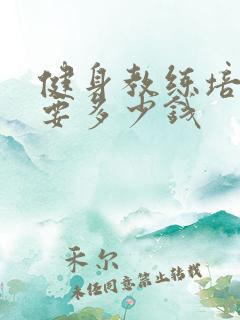 健身教练培
要多少钱
禾尔
未经同意禁止转载